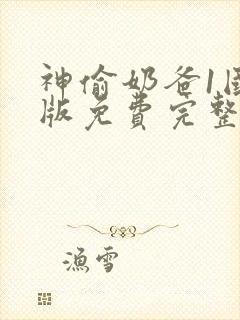 神偷奶爸1国
版免费完整
渔雪